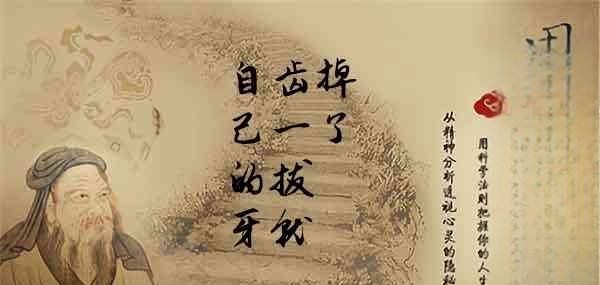 自己的牙
齿一拔就
掉了
从精神分析透视心灵的隐秘
用科学法则把握你的人生